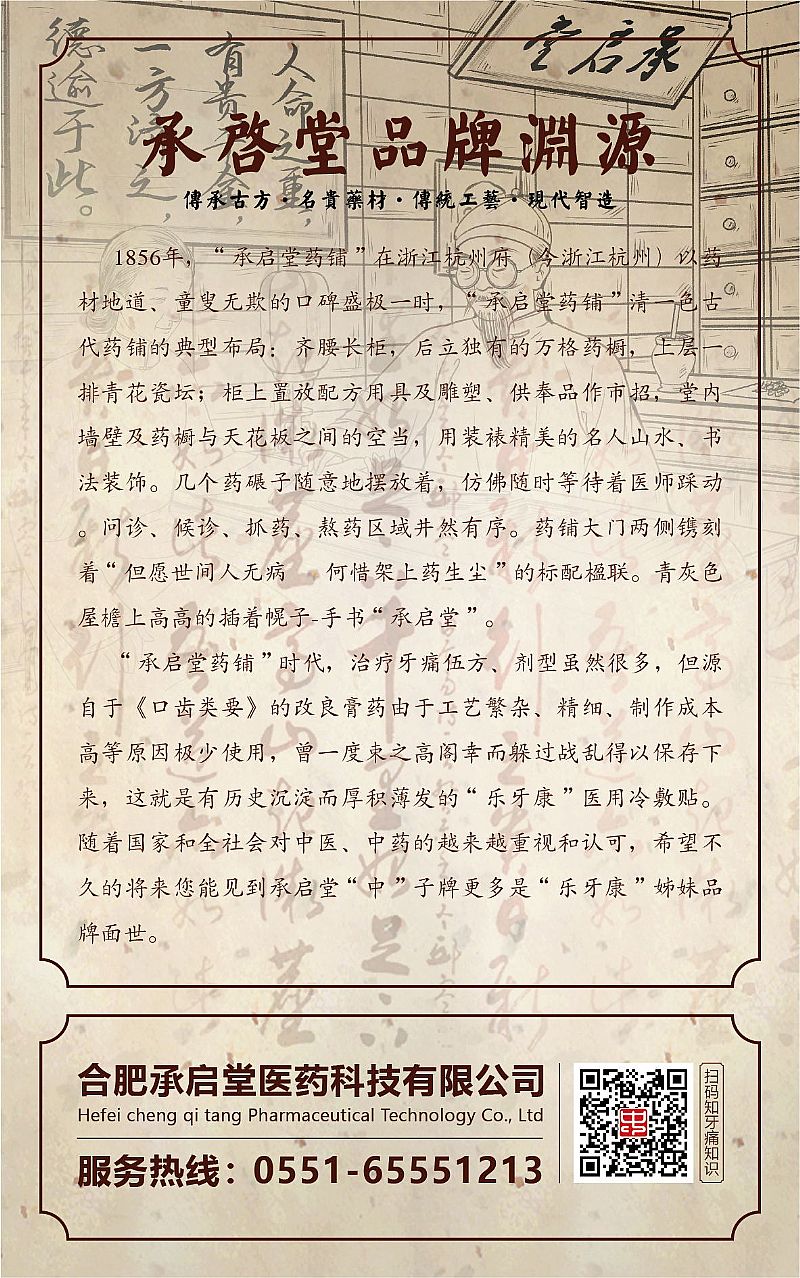 人命之重，
有贵千金，
一方济之，
德逾于此。
承启堂
承啓堂品牌淵源
傳承古方·名貴藥材·傳統工藝·現代智造
1856年，“承启堂药铺”在浙江杭州府（今浙江杭州）以药
材地道、童叟无欺的口碑盛极一时，“承启堂药铺”清一色古
代药铺的典型布局：齐腰长柜，后立独有的万格药橱，上层一
排青花瓷坛；柜上置放配方用具及雕塑、供奉品作市招，堂内
墙壁及药橱与天花板之间的空当，用装裱精美的名人山水、书
法装饰。几个药碾子随意地摆放着，仿佛随时等待着医师踩动
。问诊、候诊、抓药、熬药区域井然有序。药铺大门两侧镌刻
着“但愿世间人无病　何惜架上药生尘”的标配楹联。青灰色
屋檐上高高的插着幌子-手书“承启堂”。
“承启堂药铺”时代，治疗牙痛伍方、剂型虽然很多，但源
自于《口齿类要》的改良膏药由于工艺繁杂、精细、制作成本
高等原因极少使用，曾一度束之高阁幸而躲过战乱得以保存下
来，这就是有历史沉淀而厚积薄发的“乐牙康”医用冷敷贴。
随着国家和全社会对中医、中药的越来越重视和认可，希望不
久的将来您能见到承启堂“中”子牌更多是“乐牙康”姊妹品
牌面世。
合肥承启堂医药科技有限公司
Hefei cheng qi tang Pharmaceutical Technology Co., Ltd
服务热线：0551-65551213
扫码知牙痛知识